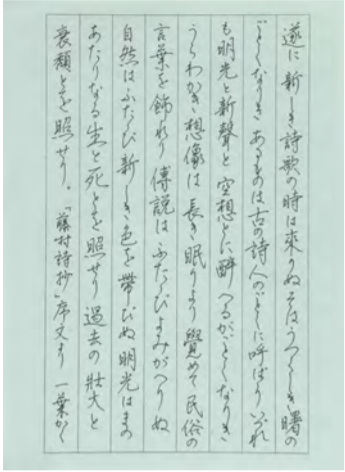 遂に新しき詩歌の時は來りぬそはうつくしき曙の
ごとくなりきあるものは古の詩人のごとくに呼ばりいづれ
も明光と新聲と空想とに醉へるがごとくなりき
うらわかき想像は長き眠りより覺めて民俗の
言葉を飾れり傳説はふたゝびよみがへりぬ
自然はふたゝび新しき色を帶びぬ明光はまの
あたりなる生と死とを照せり過去の壯大と
衰頽とを照せり。「藤村詩抄」序文より 一葉かく